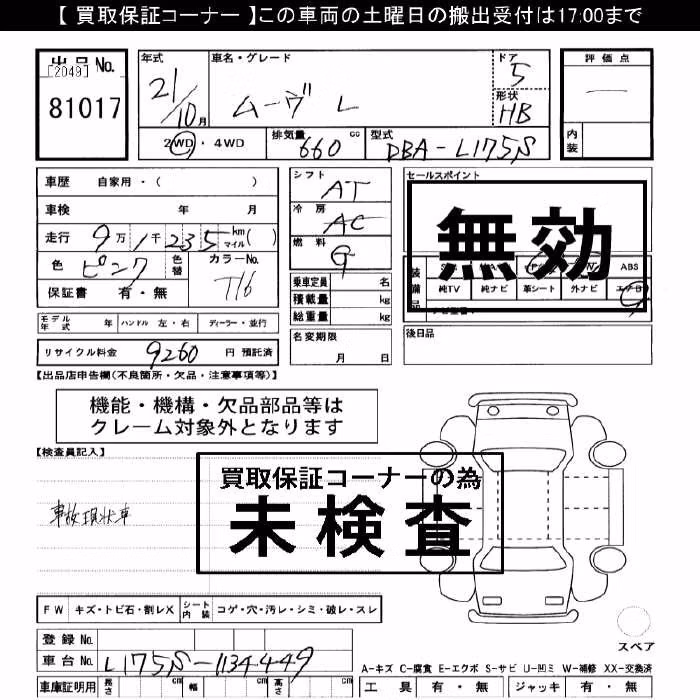 【 買取保証コーナー 】この車両の土曜日の搬出受付は17:00まで
出品 No.
[2049]
81017
年式
21/10月
車名・グレード
ムーヴ L
ドア
5
形状
HB
評価点
内装
2WD ・ 4WD
排気量
660 cc
型式
DBA-L175S
車歴 自家用・( )
車検 年 月
走行 9万1千235 km マイル ( )
色 ピンク
色替
カラーNo.
T16
保証書 有・無
シフト
AT
冷房
AC
燃料
G
乗車定員 名
積載量 kg
総重量 kg
名変期限
月 日
セールスポイント
無効
装備品
ABS
純TV 純ナビ 革シート 外ナビ エアB
後日品
モデル年式 年 ハンドル 左・右 ディーラー・並行
リサイクル料金 9260 円 預託済
【出品店申告欄(不良箇所・欠品・注意事項等)】
機能・機構・欠品部品等は
クレーム対象外となります
【検査員記入】
買取保証コーナーの為
未検査
事故現状車
FW キズ・トビ石・割レX シート内装 コゲ・穴・汚レ・シミ・破レ・スレ
登録 No.
車台 No. L175S-1134449
車庫証明用 長さ cm 幅 cm 高さ cm
スペア
A-キズ C-腐食 E-エクボ S-サビ U-凹ミ W-補修 XX-交換済
工具 有・無 ジャッキ 有・無